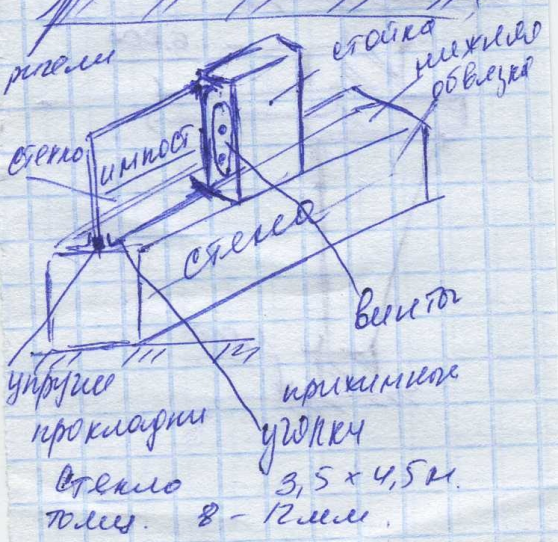 ригели
стойка
нижняя
обвязка
стекло
импост
стекло
винты
упругие
прокладки
прижимные
уголки
Стекло 3,5 × 4,5 м.
толщ. 8 - 12 мм.